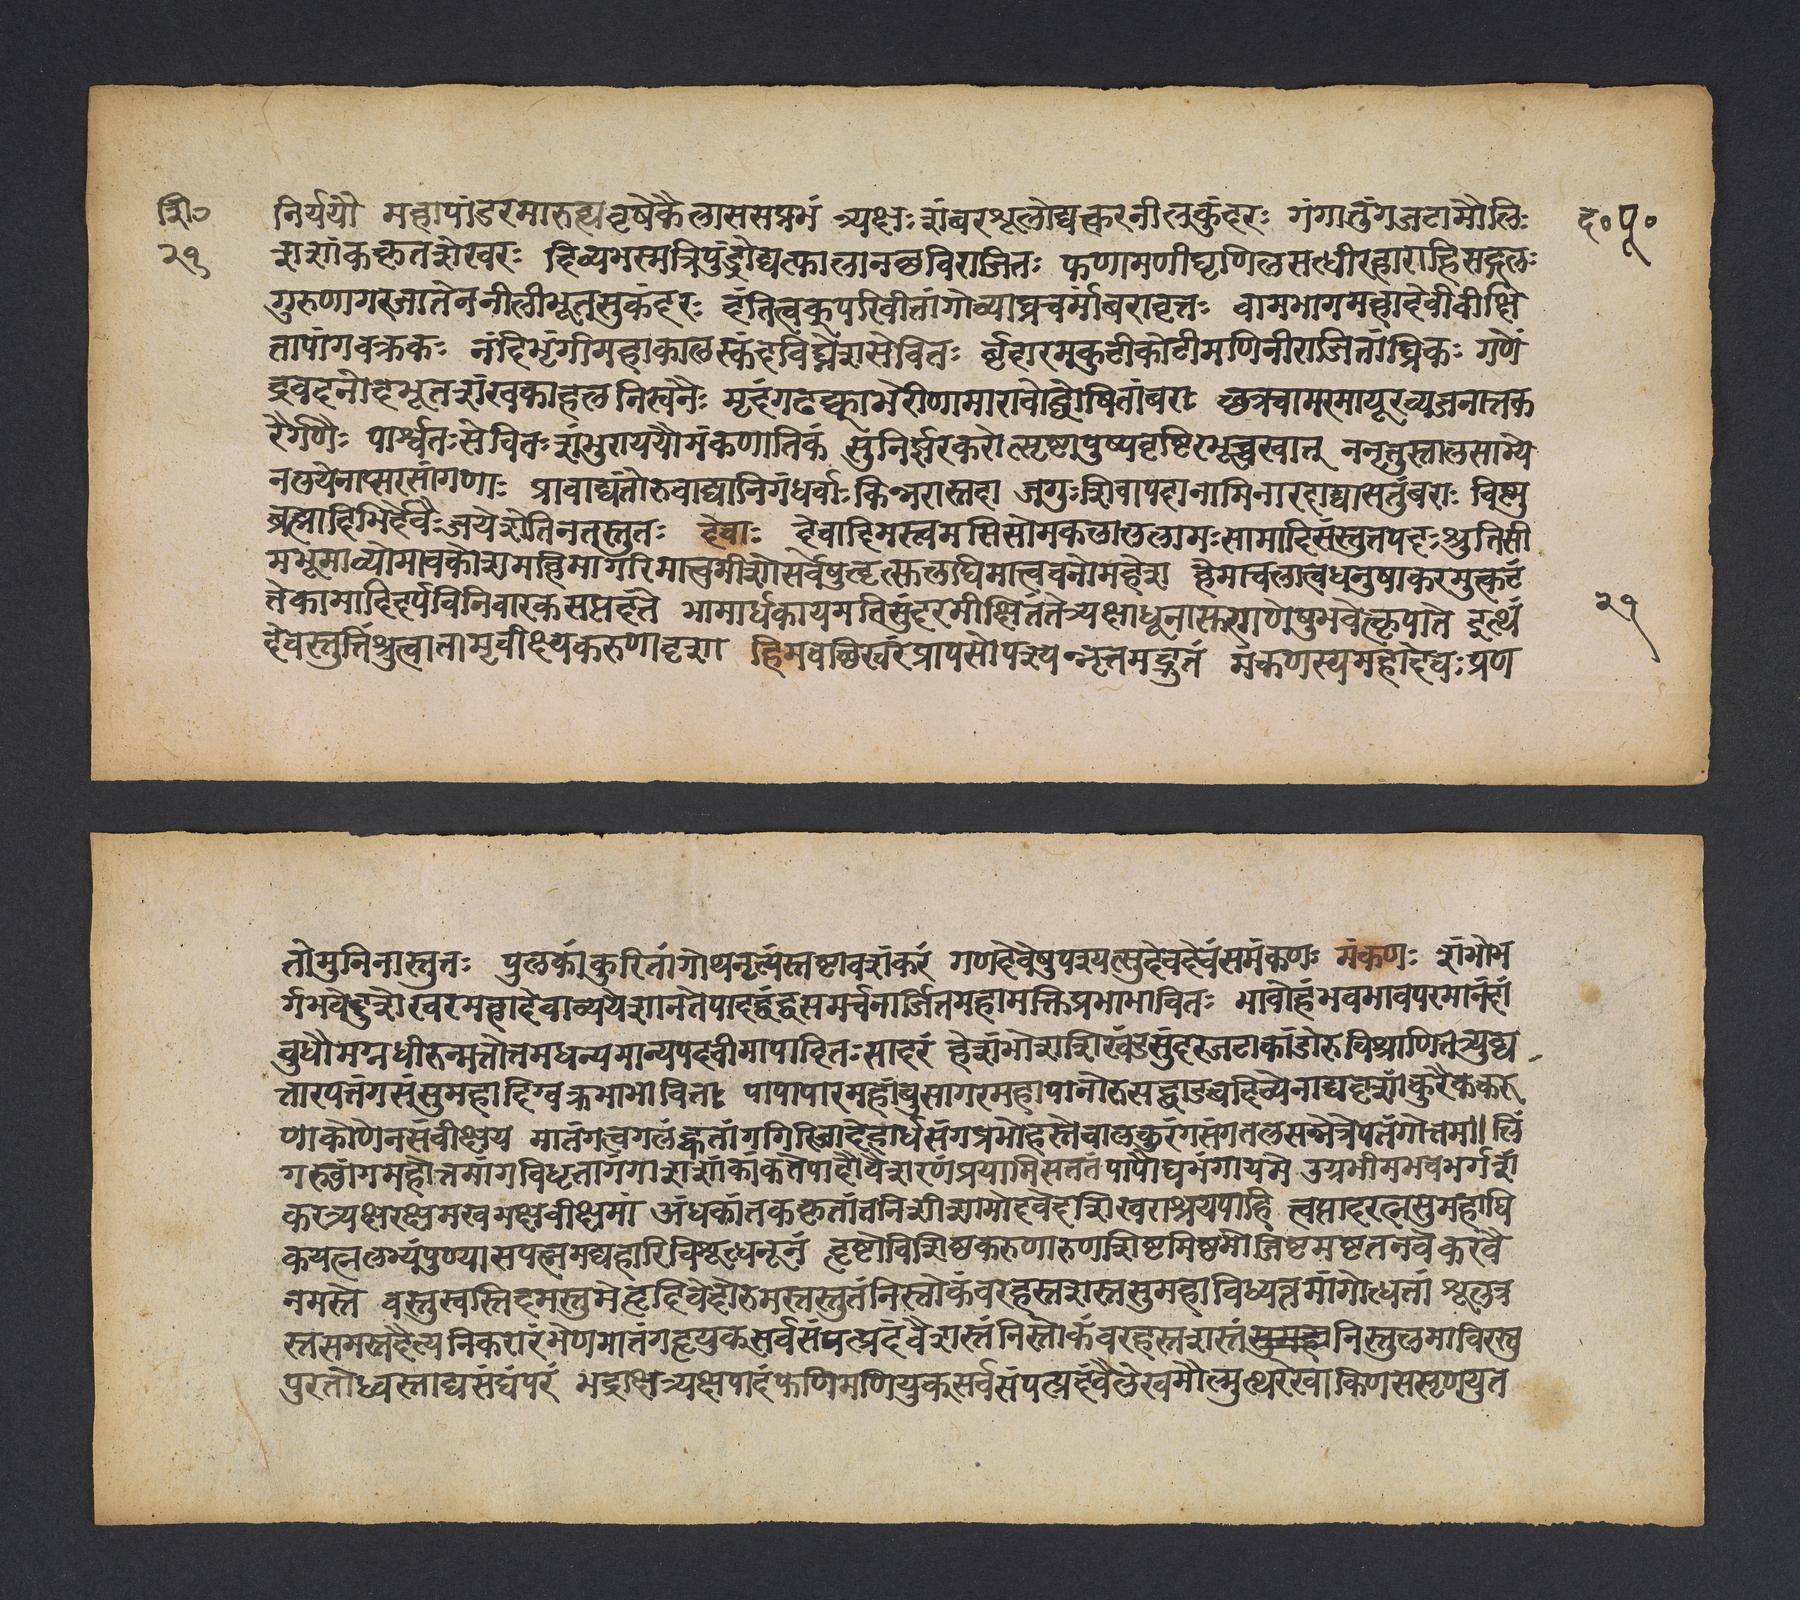 शि०
२१
द० पू०
निर्ययौ महापांडरमारुह्यवृषंकैलाससप्रभं त्र्यक्षः शंबरशूलोद्यत्करनीलकुंदरः गंगातुंगजटामौलिः
शशांककृतशेखरः दिव्यभस्मत्रिपुंड्रोद्यत्फालानलविराजितः फणामणीघृणिलसत्धीरहाराहिसद्गलः
गुरुणागरजातेननीलीभूतसुकंदरः दंतित्वक्परिवीतांगोव्याघ्रचर्मांबरावृतः वामभागमहादेवीवीक्षि
तापांगवक्त्रकः नंदिभृंगीमहाकालस्कंदविघ्नेशसेवितः र्बृंदारमुकुटीकोटीमणिनीराजितांघ्रिकः गणें
द्रवदनोद्दभूतशंखकाहलनिस्वनैः मृदंगढक्काभेरीणामारावोद्घोषितांबरा छत्रचामरमायूरव्यजनात्तक
रैर्गणैः पार्श्वतःसेवितःशंभुराययौमंकणांतिकं सुंनिर्झरकरोत्सृष्टापुष्पवृष्टिरभूच्चखात् ननृतुस्तालसाम्ये
नलयेनाप्सरसांगणाः प्रावाद्यंतोरुवाद्यानिगंधर्वाःकिन्नरास्तदा जगुःशिवापदानामिनारदाद्यासतुंबराः विष्णु
ब्रह्मादिभिर्देवैःजयेशेतिनतस्तुतः देवाः देवादिमस्त्वमसिसोमकलाललामःसामादिसंस्तुतपदःश्रुतिसी
मभूमाव्योमावकाशमहिमागरिमात्वमीशोसर्वेषुहृत्सलघिमात्ववनोमहेश हेमाचलात्वधनुषाकरमुत्कटं
तेकामादिदर्पविनिवारकसप्तदंते भामार्धकायमतिसुंदरमीक्षितंतेत्र्यक्षाधूनास्मरगणेषुभवेत्कृपाते इत्थं
देवस्तुतिंश्रुत्वातामृवीक्ष्यकरुणादृशा हिमवच्छिखरंप्रापसोपश्यन्नृत्तमद्भुतं मंकणस्यमहादेवःप्रण
२१
तोमुनिनास्तुतः पुलकांकुरितांगोथनृत्यंस्तष्टावशंकरं गणदेवेषुपश्यत्सुदेवदेवंसमंकणः मंकणः शंभोभ
र्गभवेंदुशेखरमहादेवाव्ययेशानतेपादद्वंद्वसमर्चनार्जितमहामक्तिप्रभाभावितः भावोहंभवभावपरमानंदां
बुधौमग्नधीरुन्मत्तोत्तमधन्यमान्यपदवीमापादितःसादरं हेशंभोशशिखंडसुंदरजटाकांडोरुविश्राणितेत्र्युद्य
त्तारपतंगसंसुमहादिग्वक्त्रभाभाविता पापापारमहांबुसागरमहापानोरुसद्वाडबदिव्येनाद्यदृशांकुरैककरु
णाकोणेनसंवीक्ष्यय मातंगत्वगलंकृतांगगिरिजादेहार्धसंगप्रभोहस्तेबालकुरंगसंगतलसन्नेत्रेपतंगोत्तम॥लिं
गरुडांगमहोत्तमांगविधृतागंगाशशांकांकतेपादौवैशरणंप्रयामिसततंपापौघभंगायमे उग्रभीमभवभर्गशं
करत्र्यक्षरक्षमखभक्षवीक्षमां अंधकांतककृतांतनिशीशामोदवेदशिखराश्रयपाहि त्वत्पादरत्नसुमहाधि
कयत्नलभ्यंपुण्यासपत्नमद्यहारिविशुध्धनूनं दृष्टोविशिष्टकरुणारुणशिष्टमिष्टमोजिष्टमष्टतनवेकरवै
नमस्ते वस्तुस्वस्तिदमस्तुमेहृदिवेदोरुमस्तस्तुतंनिस्तोकंवरहस्तशस्तसुमहाविध्यत्तमांगोध्धता शूलत्र
स्तसमस्तदैत्यनिकरारंभेणमातंगहृद्युकसर्वसंपत्प्रदंवैशस्तंनिस्तोकंवरहस्तशस्तंसुमहानिस्तुलमाविरस्तु
पुरतोध्वस्ताद्यसंघंपरं भद्राक्षत्र्यक्षपादंफणिमणियुकसर्वसंपत्प्रदंवैलेखमौल्मुत्थरेखाकिणसमृणयुत